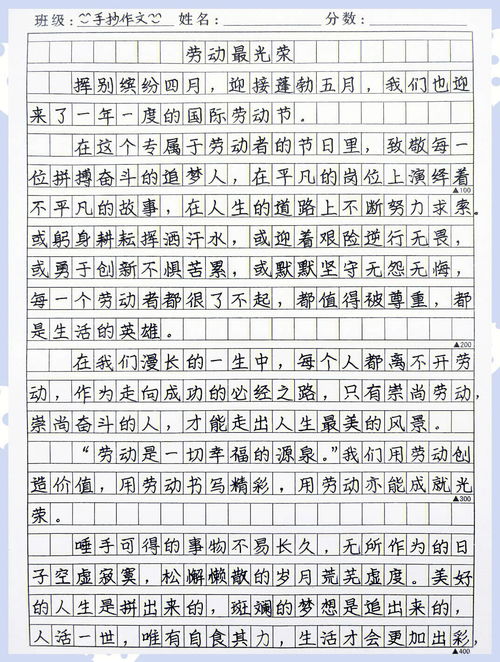 班级：手抄作文 姓名： 分数：
劳动最光荣
挥别缤纷四月，迎接蓬勃五月，我们也迎
来了一年一度的国际劳动节。
在这个专属于劳动者的节日里，致敬每一
位拼搏奋斗的追梦人，在平凡的岗位上演绎着
▲100
不平凡的故事，在人生的道路上不断努力求索。
或躬身耕耘挥洒汗水，或迎着艰险逆行无畏，
或勇于创新不惧苦累，或默默坚守无怨无悔，
每一个劳动者都很了不起，都值得被尊重，都
是生活的英雄。
▲200
在我们漫长的一生中，每个人都离不开劳
动，作为走向成功的必经之路，只有崇尚劳动，
崇尚奋斗的人，才能走出人生最美的风景。
“劳动是一切幸福的源泉。”我们用劳动创
造价值，用劳动书写精彩，用劳动亦能成就光
▲300
荣。
唾手可得的事物不易长久，无所作为的日
子空虚寂寞，松懈懒散的岁月荒芜虚度。美好
的人生是拼出来的，斑斓的梦想是追出来的，
人活一世，唯有自食其力，生活才会更加出彩，
▲400